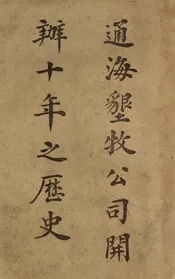 通海墾牧公司開
辦十年之歷史